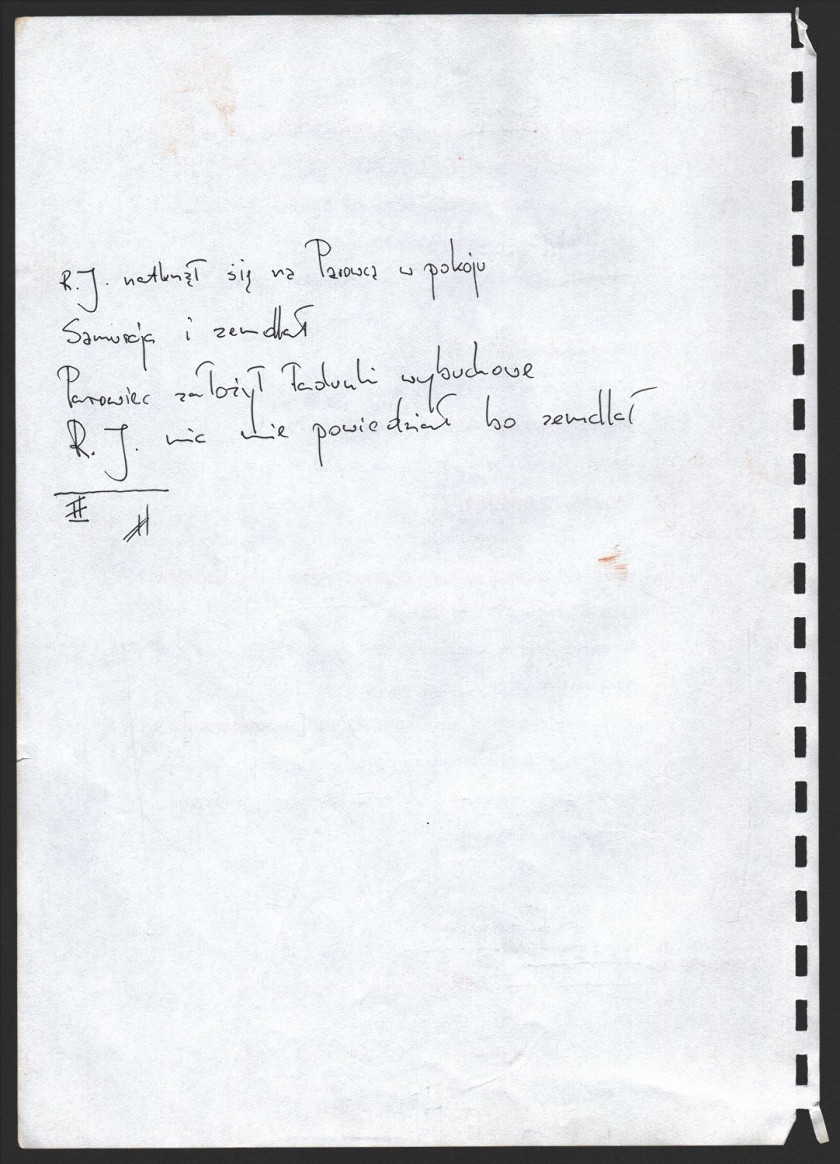 R.J. natknął się na Parowca w pokoju
Samuraja i zemdlał
Parowiec założył ładunki wybuchowe
R.J. nic nie powiedział bo zemdlał
II